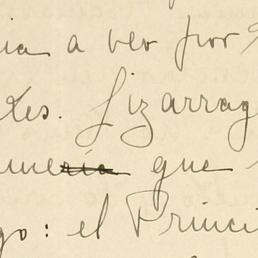 ia a ver por
tes. Lizarrag
ume~~ria~~ que
go: el Princi